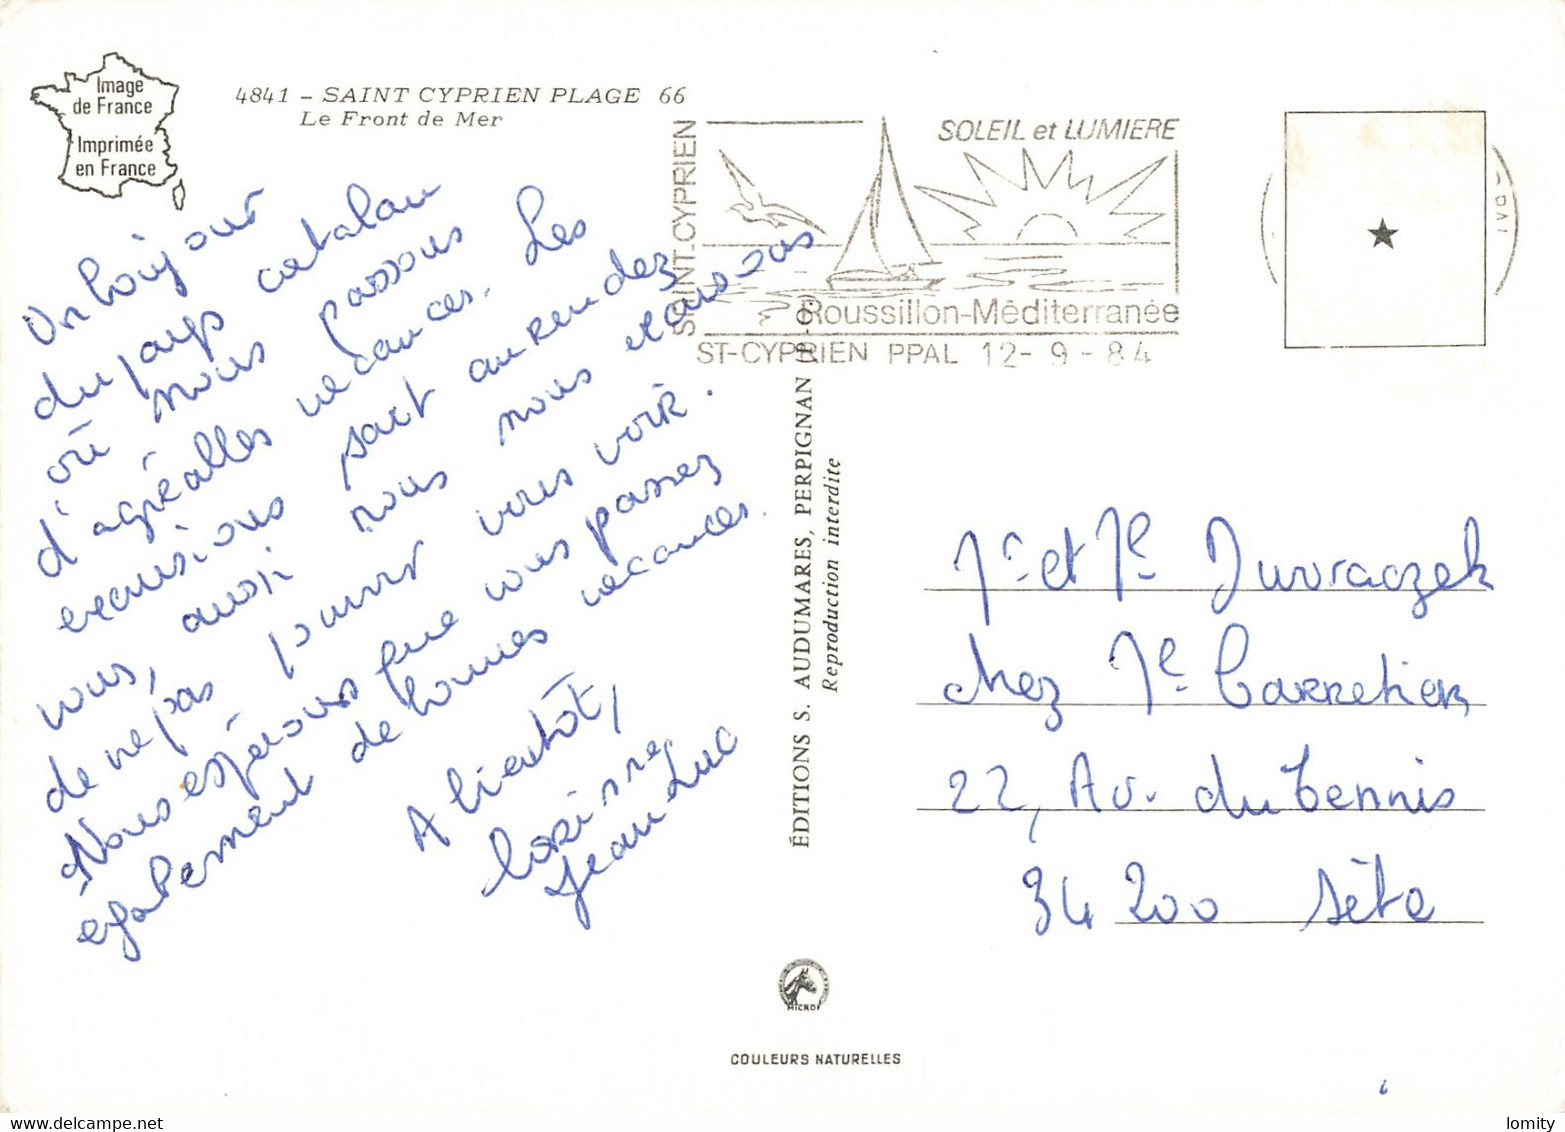 Image
de France
Imprimée
en France
4841 – SAINT CYPRIEN PLAGE 66
Le Front de Mer
SAINT-CYPRIEN
SOLEIL et LUMIERE
Roussillon-Méditerranée
ST-CYPRIEN PPAL 12-9-84
Un bonjour
du pays catalan
où nous passons
d'agréables vacances. Les
excursions sont au rendez
vous, aussi nous nous excusons
de ne pas pouvoir vous voir.
Nous espérons que vous passez
également de bonnes vacances.
A bientôt,
Corinne
Jean-Luc
ÉDITIONS S. AUDUMARES, PERPIGNAN
Reproduction interdite
Mr et Me
chez Me Carretier
22, Av. du Tennis
34 200 Sète
MICRO
COULEURS NATURELLES
delcampe.net
lomity